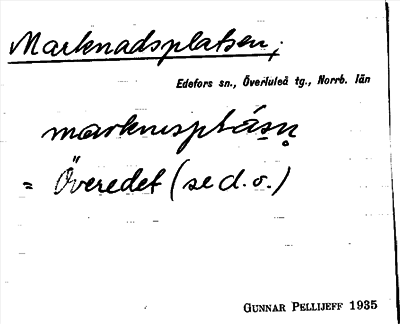 Marknadsplatsen;
Edefors sn., Överluleå tg., Norrb. län
marknsplásn̥
= Överedet (se d. o.)
GUNNAR PELLIJEFF 1935